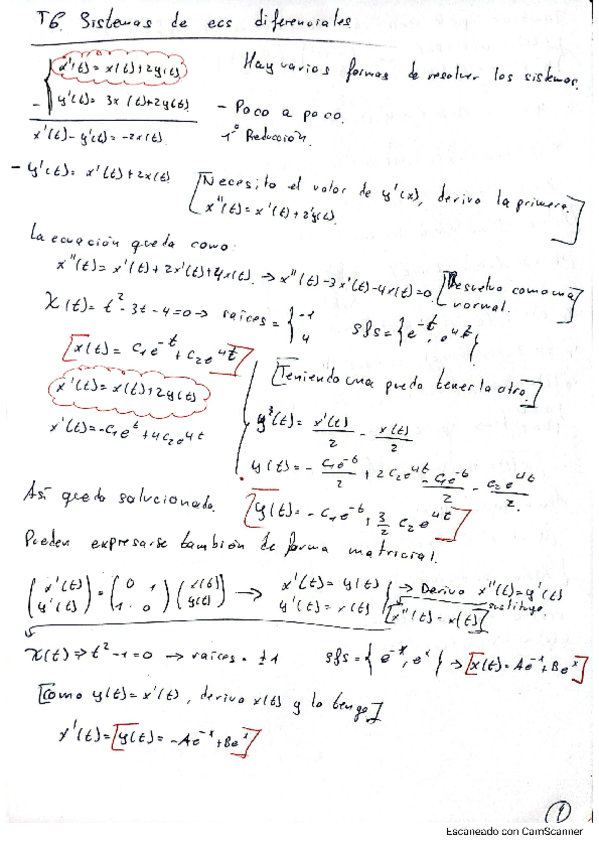 T6. Sistemas de ecs diferenciales.
x'(t) = x(t)+2y(t)
Hay varias formas de resolver los sistemas.
- y'(t) = 3x(t)+2y(t)
- Poco a poco.
x'(t)-y'(t) = -2x(t)
1º Reducción.
- y'(t) = x'(t)+2x(t)
[Necesito el valor de y'(x), derivo la primera.
x''(t) = x'(t)+2y'(t)]
La ecuación queda como:
x''(t) = x'(t)+2x'(t)+4x(t) → x''(t)-3x'(t)-4x(t)=0 [Resuelvo como una normal.]
X(t) = t²-3t-4=0 → raíces = { -1 4
sfs = {e^-t, e^4t}
[x(t) = c1e^-t + c2e^4t]
x'(t) = x(t)+2y(t)
[Teniendo una puedo tener la otra.]
x'(t) = -c1e^-t + 4c2e^4t
y(t) = x'(t)/2 - x(t)/2
y(t) = - c1e^-t/2 + 2c2e^4t - c1e^-t/2 - c2e^4t/2
Así queda solucionado.
[y(t) = -c1e^-t + 3/2 c2e^4t]
Pueden expresarse también de forma matricial.
(x'(t) y'(t)) = (0 1 1 0) (x(t) y(t)) → x'(t) = y(t) → Derivo x''(t)=y'(t)
y'(t) = x(t) sustituyo.
[x''(t) = x(t)]
X(t) ⇒ t²-1=0 → raíces = ±1 sfs = {e^-x, e^x} → [x(t) = Ae^-x + Be^x]
[Como y(t) = x'(t), derivo x(t) y lo tengo]
x'(t) = [y(t) = -Ae^-x + Be^x]
1
Escaneado con CamScanner